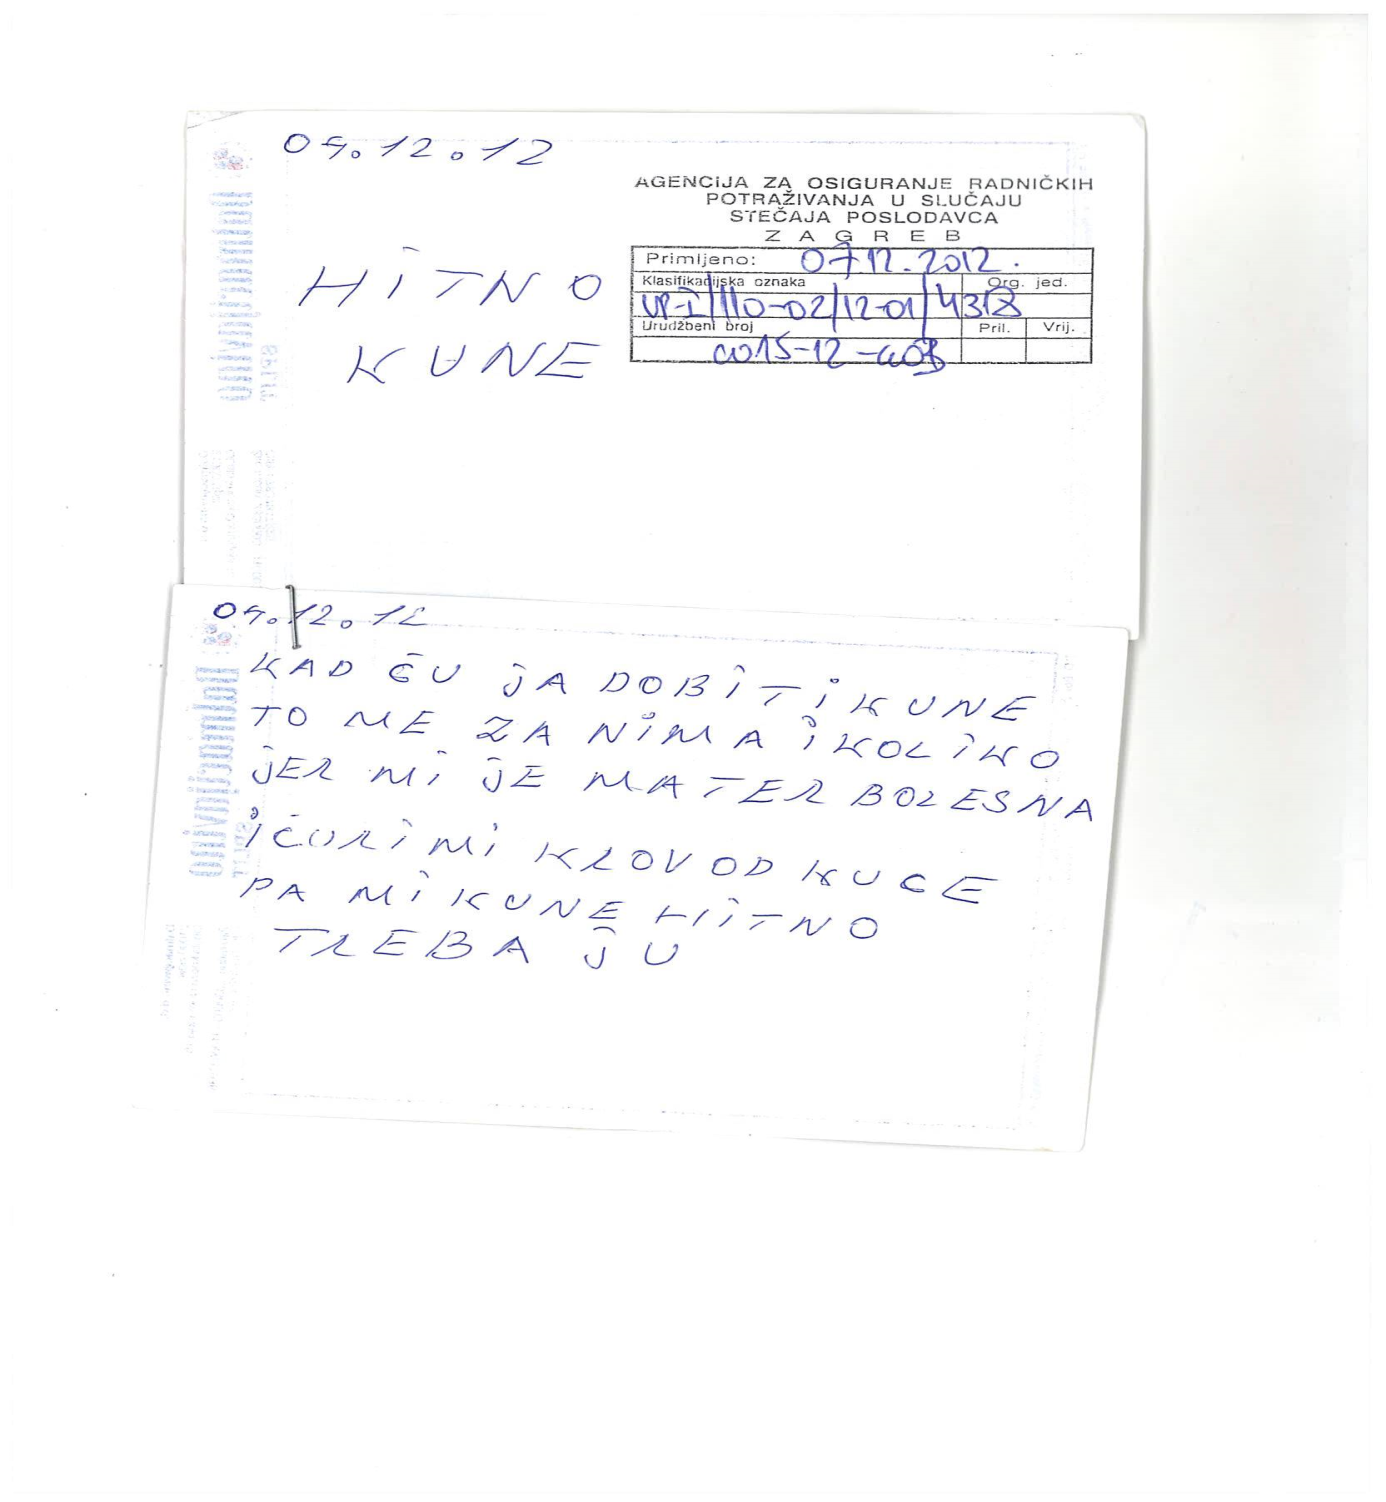 04.12.12
AGENCIJA ZA OSIGURANJE RADNIČKIH
POTRAŽIVANJA U SLUČAJU
STEČAJA POSLODAVCA
ZAGREB
Primljeno: 07 12. 2012.
Klasifikacijska oznaka Org. jed.
UP-I/110-02/12-01/4318
Urudžbeni broj Pril. Vrij.
HITNO
KUNE
04.12.12
KAD ĆU JA DOBITI KUNE
TO ME ZANIMA I KOLIKO
JER MI JE MATER BOLESNA
I CURI MI KROV OD KUCE
PA MI KUNE HITNO
TREBAJU